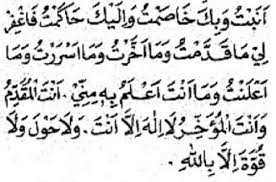 اَنَبْتُ وَبِكَ خَاصَمْتُ وَاِلَيْكَ حَاكَمْتُ فَاغْفِرْ
لِيْ مَا قَدَّمْتُ وَمَا اَخَّرْتُ وَمَا اَسْرَرْتُ وَمَا
اَعْلَنْتُ وَمَا اَنْتَ اَعْلَمُ بِهِ مِنِّيْ . اَنْتَ الْمُقَدِّمُ
وَاَنْتَ الْمُؤَخِّرُ لَا اِلٰهَ اِلَّا اَنْتَ . وَلَا حَوْلَ وَلَا
قُوَّةَ اِلَّا بِاللهِ .